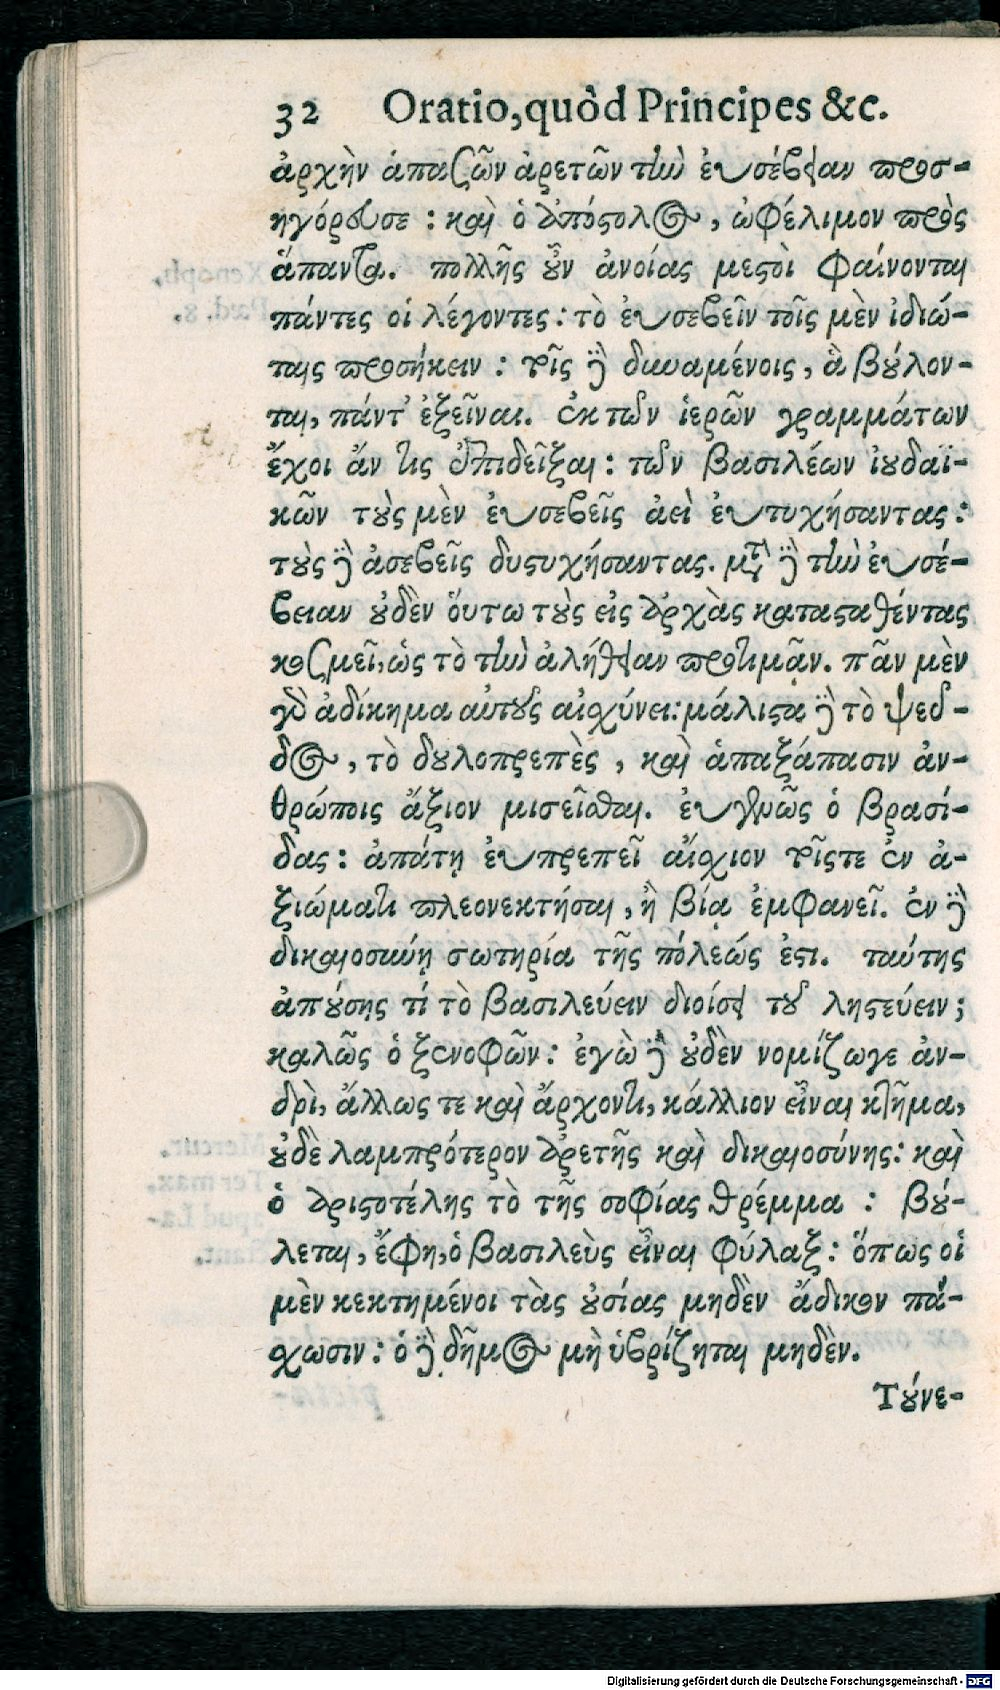 32 Oratio, quòd Principes &c.
ἀρχὴν ἁπασῶν ἀρετῶν τὴν ἐυσέβειαν προσ-
ηγόρευσε : καὶ ὁ ἀπόστολος, ὠφέλιμον πρὸς
ἅπαντα. πολλῆς οὖν ἀνοίας μεστοὶ φαίνονται
πάντες οἱ λέγοντες : τὸ ἐυσεβεῖν τοῖς μὲν ἰδιώ-
ταις προσήκειν : τοῖς δὲ δυναμένοις, ἃ βούλον-
ται, πάντ' ἐξεῖναι. ἐκ τῶν ἱερῶν γραμμάτων
ἔχοι ἄν τις ἐπιδεῖξαι : τῶν βασιλέων ἰουδαϊ-
κῶν τοὺς μὲν ἐυσεβεῖς ἀεὶ ἐυτυχήσαντας :
τοὺς δὲ ἀσεβεῖς δυστυχήσαντας. μετὰ δὲ τὴν ἐυσέ-
βειαν οὐδὲν ὅυτω τοὺς εἰς ἀρχὰς κατασταθέντας
κοσμεῖ, ὡς τὸ τὴν ἀλήθειαν προτιμᾷν. πᾶν μὲν
γὰρ ἀδίκημα αὐτοὺς αἰσχύνει: μάλιστα δὲ τὸ ψεῦ-
δος, τὸ δουλοπρεπὲς, καὶ ἁπαξάπασιν ἀν-
θρώποις ἄξιον μισεῖσθαι. ἐυγενῶς ὁ βρασί-
δας : ἀπάτῃ ἐυπρεπεῖ αἴσχιον τοῖς τε ἐν ἀ-
ξιώματι πλεονεκτῆσαι, ἢ βίᾳ ἐμφανεῖ. ἐν δὲ
δικαιοσύνῃ σωτηρία τῆς πόλεώς ἐστι. ταύτης
ἀπούσης τί τὸ βασιλεύειν διοίσει τοῦ λῃστεύειν ;
καλῶς ὁ ξενοφῶν : ἐγὼ δὲ οὐδὲν νομίζωγε ἀν-
δρὶ, ἄλλως τε καὶ ἄρχοντι, κάλλιον εἶναι κτῆμα,
οὐδὲ λαμπρότερον ἀρετῆς καὶ δικαιοσύνης : καὶ
ὁ ἀριστοτέλης τὸ τῆς σοφίας θρέμμα : βού-
λεται, ἔφη, ὁ βασιλεὺς εἶναι φύλαξ : ὅπως οἱ
μὲν κεκτημένοι τὰς οὐσίας μηδὲν ἄδικον πά-
σχωσιν : ὁ δὲ δῆμος μὴ ὑβρίζηται μηδὲν.
Τούνε-
Digitalisierung gefördert durch die Deutsche Forschungsgemeinschaft - DFG